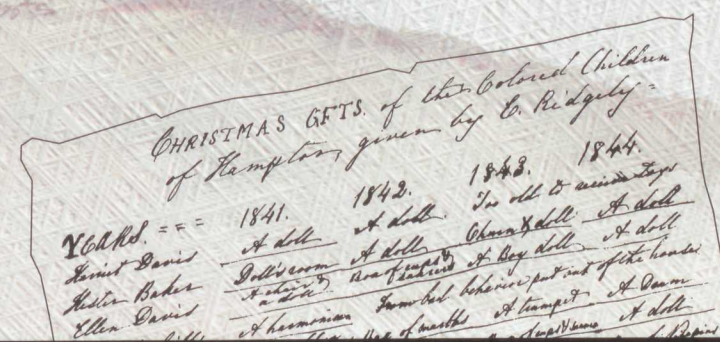 CHRISTMAS GFTS. of the Colored Children
of Hampton, given by E. Ridgely =
YEARS. = = = 1841. 1842. 1843. 1844.
Harriet Davis A doll A doll Too old to
Hester Baker Doll's room A doll Churn & doll A doll
Ellen Davis A chair & a doll Box of cups & A Boy doll A doll
A harmonicon From bad behavior put out of the house
Box of marbles A trumpet A Drum
A doll